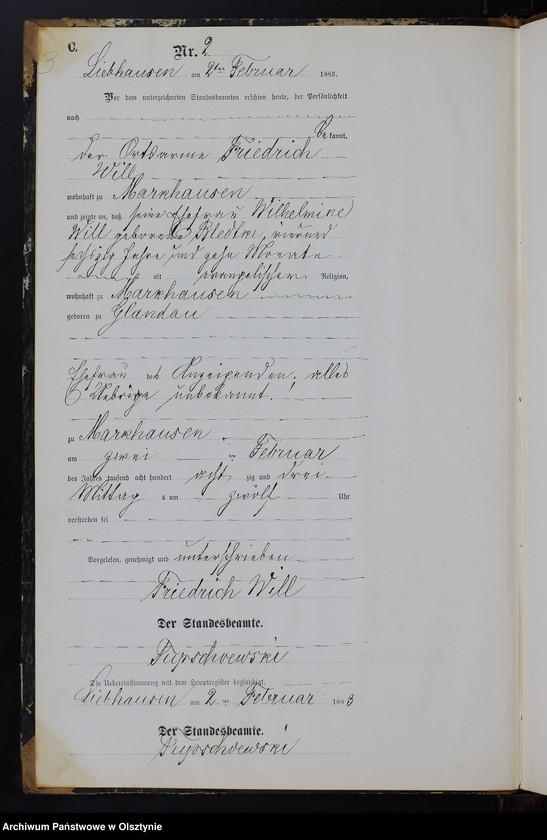 C.
3
Nr. 2
Liebhausen am 2ten Februar 1883.
Vor dem unterzeichneten Standesbeamten erschien heute, der Persönlichkeit
nach
be kannt,
der Ortsarme Friedrich
Will
wohnhaft zu Markhausen
und zeigte an, daß seine Ehefrau Wilhelmine
Will geborene, vierund
sechszig Jahre und zehn Monate
alt evangelischer Religion,
wohnhaft zu Markhausen
geboren zu Glandau
Ehefrau des Anzeigenden, alles
Uebrige unbekannt!
zu Markhausen
am zwei ten Februar
des Jahres tausend acht hundert acht zig und drei
Mittag s um zwölf Uhr
verstorben sei
Vorgelesen, genehmigt und unterschrieben
Friedrich Will
Der Standesbeamte.
Die Uebereinstimmung mit dem Hauptregister beglaubigt.
Liebhausen am 2 ten Februar 1883
Der Standesbeamte.
Archiwum Państwowe w Olsztynie